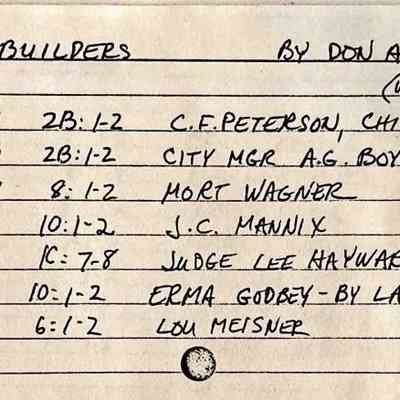 BUILDERS BY DON A
2B: 1-2 C.F. PETERSON, CHI
2B: 1-2 CITY MGR A.G. BOY
8: 1-2 MORT WAGNER
10: 1-2 J.C. MANNIX
1C: 7-8 JUDGE LEE HAYWAR
10: 1-2 ERMA GODBEY - BY LA
6: 1-2 LOU MEISNER